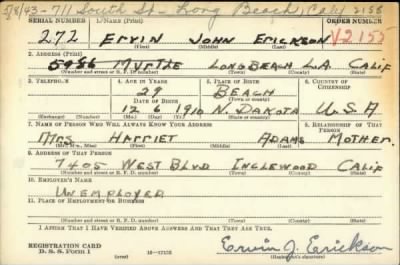 5/8/43-711 South St. Long Beach, Calif 2155
SERIAL NUMBER 1. NAME (Print) ORDER NUMBER
272 ERVIN JOHN ERICKSON V2155
(First) (Middle) (Last)
2. ADDRESS (Print)
5956 MYRTLE LONG BEACH L.A. CALIF
(Number and street or R. F. D. number) (Town) (County) (State)
3. TELEPHONE 4. AGE IN YEARS 5. PLACE OF BIRTH 6. COUNTRY OF CITIZENSHIP
29 BEACH
DATE OF BIRTH (Town or county)
12 6 1910 N. DAKOTA U.S.A
(Mo.) (Day) (Yr.) (State or country)
7. NAME OF PERSON WHO WILL ALWAYS KNOW YOUR ADDRESS 8. RELATIONSHIP OF THAT PERSON
MRS HARRIET ADAMS MOTHER.
(Mr., Mrs., Miss) (First) (Middle) (Last)
9. ADDRESS OF THAT PERSON
7405 WEST BLVD INGLEWOOD CALIF
(Number and street or R. F. D. number) (Town) (County) (State)
10. EMPLOYER'S NAME
UNEMPLOYED
11. PLACE OF EMPLOYMENT OR BUSINESS
(Number and street or R. F. D. number) (Town) (County) (State)
I AFFIRM THAT I HAVE VERIFIED ABOVE ANSWERS AND THAT THEY ARE TRUE.
REGISTRATION CARD
D. S. S. Form 1 16-17105 Ervin J. Erickson
(Registrant's signature)